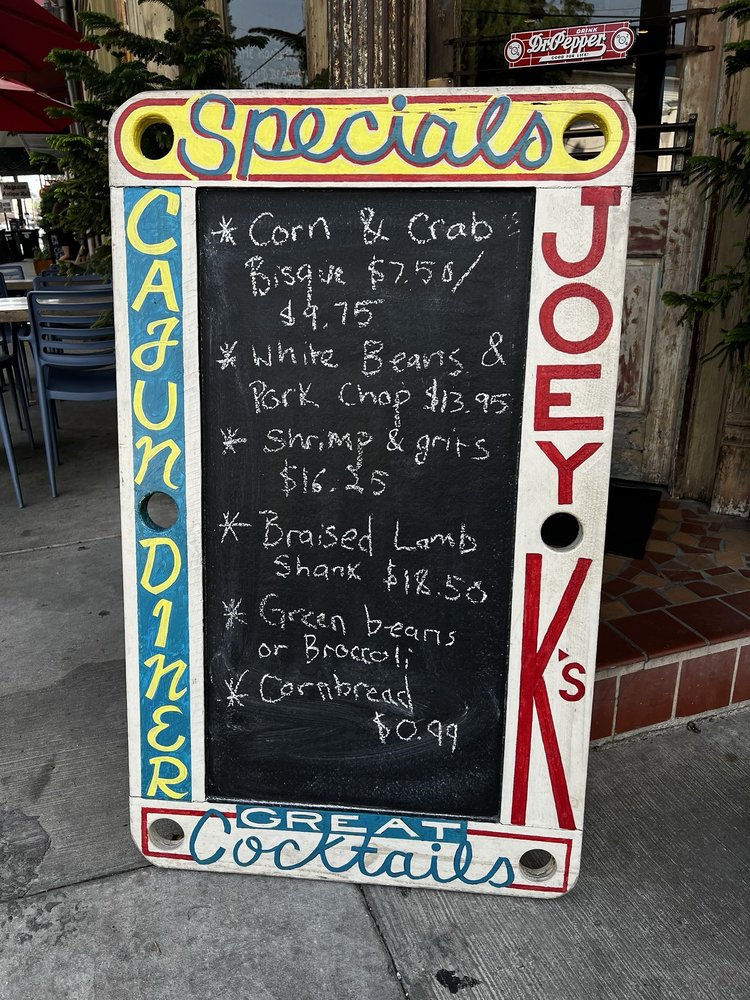 DRINK
Dr Pepper
GOOD FOR LIFE!
Specials
CAJUN DINER
* Corn & Crab
Bisque $7.50/
$9.75
* White Beans &
Pork Chop $13.95
* Shrimp & grits
$16.25
* Braised Lamb
Shank $18.50
* Green beans
or Broccoli
* Cornbread
$0.99
JOEY K's
GREAT
Cocktails